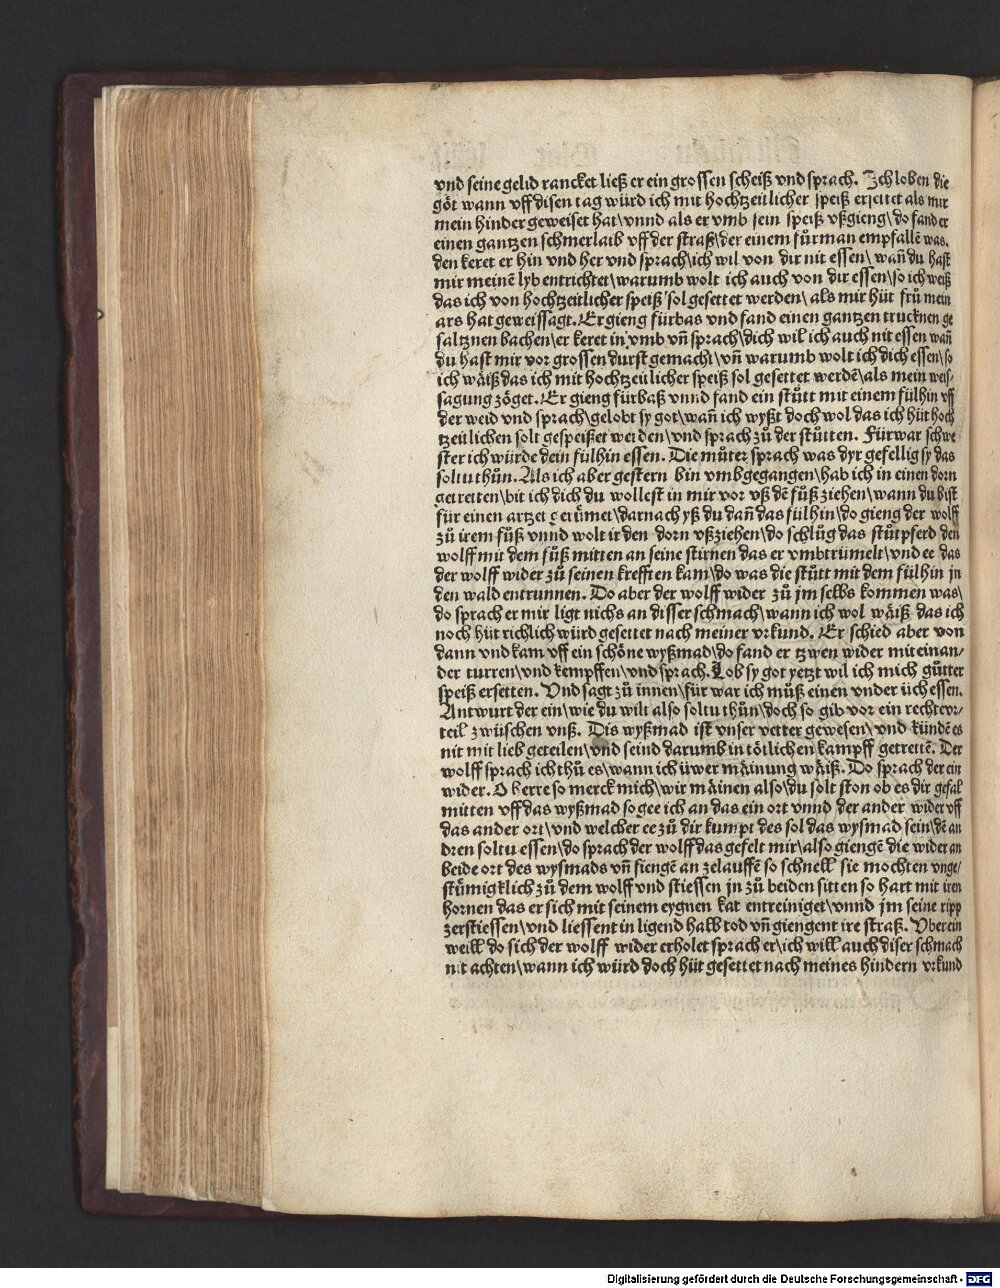 vnd seine gelid rancket ließ er ein grossen scheiß vnd sprach. Ich loben die
göt wann vff disen tag würd ich mit hochtzeitlicher speiß ersettet als mir
mein hinder geweiset hat\vnnd als er vmb sein speiß vßgieng\do fand er
einen gantzen schmerlaib vff der straß\der einem fůrman empfallē was.
den keret er hin vnd her vnd sprach\ich wil von dir nit essen\ wañ du hast
mir meinē lyb entrichtet\warumb wolt ich auch von dir essen\so ich weiß
das ich von hochtzeitlicher speiß sol gesettet werden\ als mir hüt frů mein
ars hat geweissagt. Er gieng fürbas vnd fand einen gantzen trucknen ge
saltznen bachen\er keret in vmb vñ sprach\dich wil ich auch nit essen wañ
du hast mir vor grossen durst gemacht\vñ warumb wolt ich dich essen\so
ich wäiß das ich mit hochtzeitlicher speiß sol gesettet werdē\als mein weis⸗
sagung zöget. Er gieng fürbaß vnnd fand ein stůtt mit einem fülhin vff
der weid vnd sprach\gelobt sy got\wañ ich wyßt doch wol das ich hüt hoch
tzeitlichen solt gespeißet werden\vnd sprach zů der stůtten. Fürwar schwe
ster ich würde dein fülhin essen. Die můter sprach was dyr gefellig sy das
soltu thůn. Als ich aber gestern bin vmbgegangen\hab ich in einen dorn
getretten\bit ich dich du wollest in mir vor vß dē fůß ziehen\wann du bist
für einen artzet gerümet\darnach yß du dañ das fülhin\do gieng der wolff
zů irem fůß vnnd wolt ir den dorn vßziehen\do schlůg das stůtpferd den
wolff mit dem fůß mitten an seine stirnen das er vmbtrümelt\vnd ee das
der wolff wider zů seinen krefften kam\do was die stůtt mit dem fülhin jn
den wald entrunnen. Do aber der wolff wider zů jm selbs kommen was\
do sprach er mir ligt nichs an disser schmach\wann ich wol wäiß das ich
noch hüt richlich würd gesettet nach meiner vrkund. Er schied aber von
dann vnd kam vff ein schöne wyßmad\do fand er tzwen wider mit einan⸗
der turren\vnd kempffen\vnd sprach. Lob sy got yetzt wil ich mich gůtter
speiß ersetten. Vnd sagt zů innen\für war ich můß einen vnder üch essen.
Antwurt der ein\wie du wilt also soltu thůn\doch so gib vor ein recht vr⸗
teil zwüschen vnß. Dis wyßmad ist vnser vetter gewesen\vnd kündē es
nit mit lieb geteilen\vnd seind darumb in tötlichen kampff getrettē. Der
wolff sprach ich thů es\wann ich üwer mäinung wäiß. Do sprach der ein
wider. O herre so merck mich\wir mäinen also\du solt ston ob es dir gefal
mitten vff das wyßmad so gee ich an das ein ort vnnd der ander wider vff
das ander ort\vnd welcher ee zů dir kumpt des sol das wysmad sein\dē an
dren soltu essen\do sprach der wolff das gefelt mir\also giengē die wider an
beide ort des wysmads vñ fiengē an zelauffē so schnell sie mochten vnge⸗
stůmigklich zů dem wolff vnd stiessen jn zů beiden sitten so hart mit iren
hornen das er sich mit seinem eygnen kat entreiniget\vnnd jm seine ripp
zerstiessen\vnd liessent in ligend halb tod vñ giengent ire straß. Vber ein
weill do sich der wolff wider erholet sprach er\ich will auch diser schmach
nit achten\wann ich würd doch hüt gesettet nach meines hindern vrkund
Digitalisierung gefördert durch die Deutsche Forschungsgemeinschaft - DFG